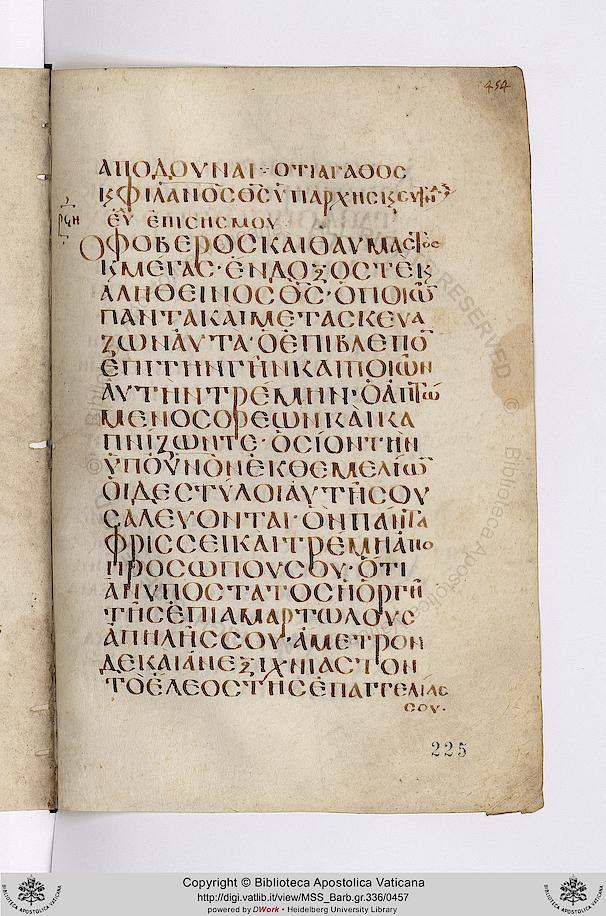 454
ΑΠΟΔΟΥΝΑΙ· ΟΤΙ ΑΓΑΘΟΣ
Ϗ ΦΙΛΑΝΟΣ ΘΣ ΥΠΑΡΧΗΣ Ϗ
ΕΥ ΕΠΙ ΣΗΣΜΟΥ
Ο ΦΟΒΕΡΟΣ ΚΑΙ ΘΑΥΜΑΣΤΟΣ
Ϗ ΜΕΓΑΣ· ΕΝΔΟΞΟΣ ΤΕ Ϗ
ΑΛΗΘΕΙΝΟΣ ΘΣ· Ο ΠΟΙΩ
ΠΑΝΤΑ ΚΑΙ ΜΕΤΑΣΚΕΥΑ
ΖΩΝ ΑΥΤΑ· Ο ΕΠΙΒΛΕΠΟ
ΕΠΙ ΤΗΝ ΓΗΝ ΚΑΙ ΠΟΙΩΝ
ΑΥΤΗΝ ΤΡΕΜΗΝ· Ο ΑΠΤΩ
ΜΕΝΟΣ ΟΡΕΩΝ ΚΑΙ ΚΑ
ΠΝΙΖΩΝΤΕ· Ο ΣΙΟΝ ΤΗΝ
ΥΠ ΟΥΝΟΝ ΕΚ ΘΕΜΕΛΙΩ
ΟΙ ΔΕ ΣΤΥΛΟΙ ΑΥΤΗΣ ΟΥ
ΣΑΛΕΥΟΝΤΑΙ· ΟΝ ΠΑΝΤΑ
ΦΡΙΣΣΕΙ ΚΑΙ ΤΡΕΜΗ ΑΠΟ
ΠΡΟΣΩΠΟΥ ΣΟΥ· ΟΤΙ
ΑΝΥΠΟΣΤΑΤΟΣ Η ΟΡΓΗ
ΤΗΣ ΕΠΙ ΑΜΑΡΤΩΛΟΥΣ
ΑΠΗΛΗΣ ΣΟΥ· ΑΜΕΤΡΟΝ
ΔΕ ΚΑΙ ΑΝΕΞΙΧΝΙΑΣΤΟΝ
ΤΟ ΕΛΕΟΣ ΤΗΣ ΕΠΑΓΓΕΛΙΑΣ
ΣΟΥ·
225
Copyright © Biblioteca Apostolica Vaticana
http://digi.vatlib.it/view/MSS_Barb.gr.336/0457
powered by DWork · Heidelberg University Library